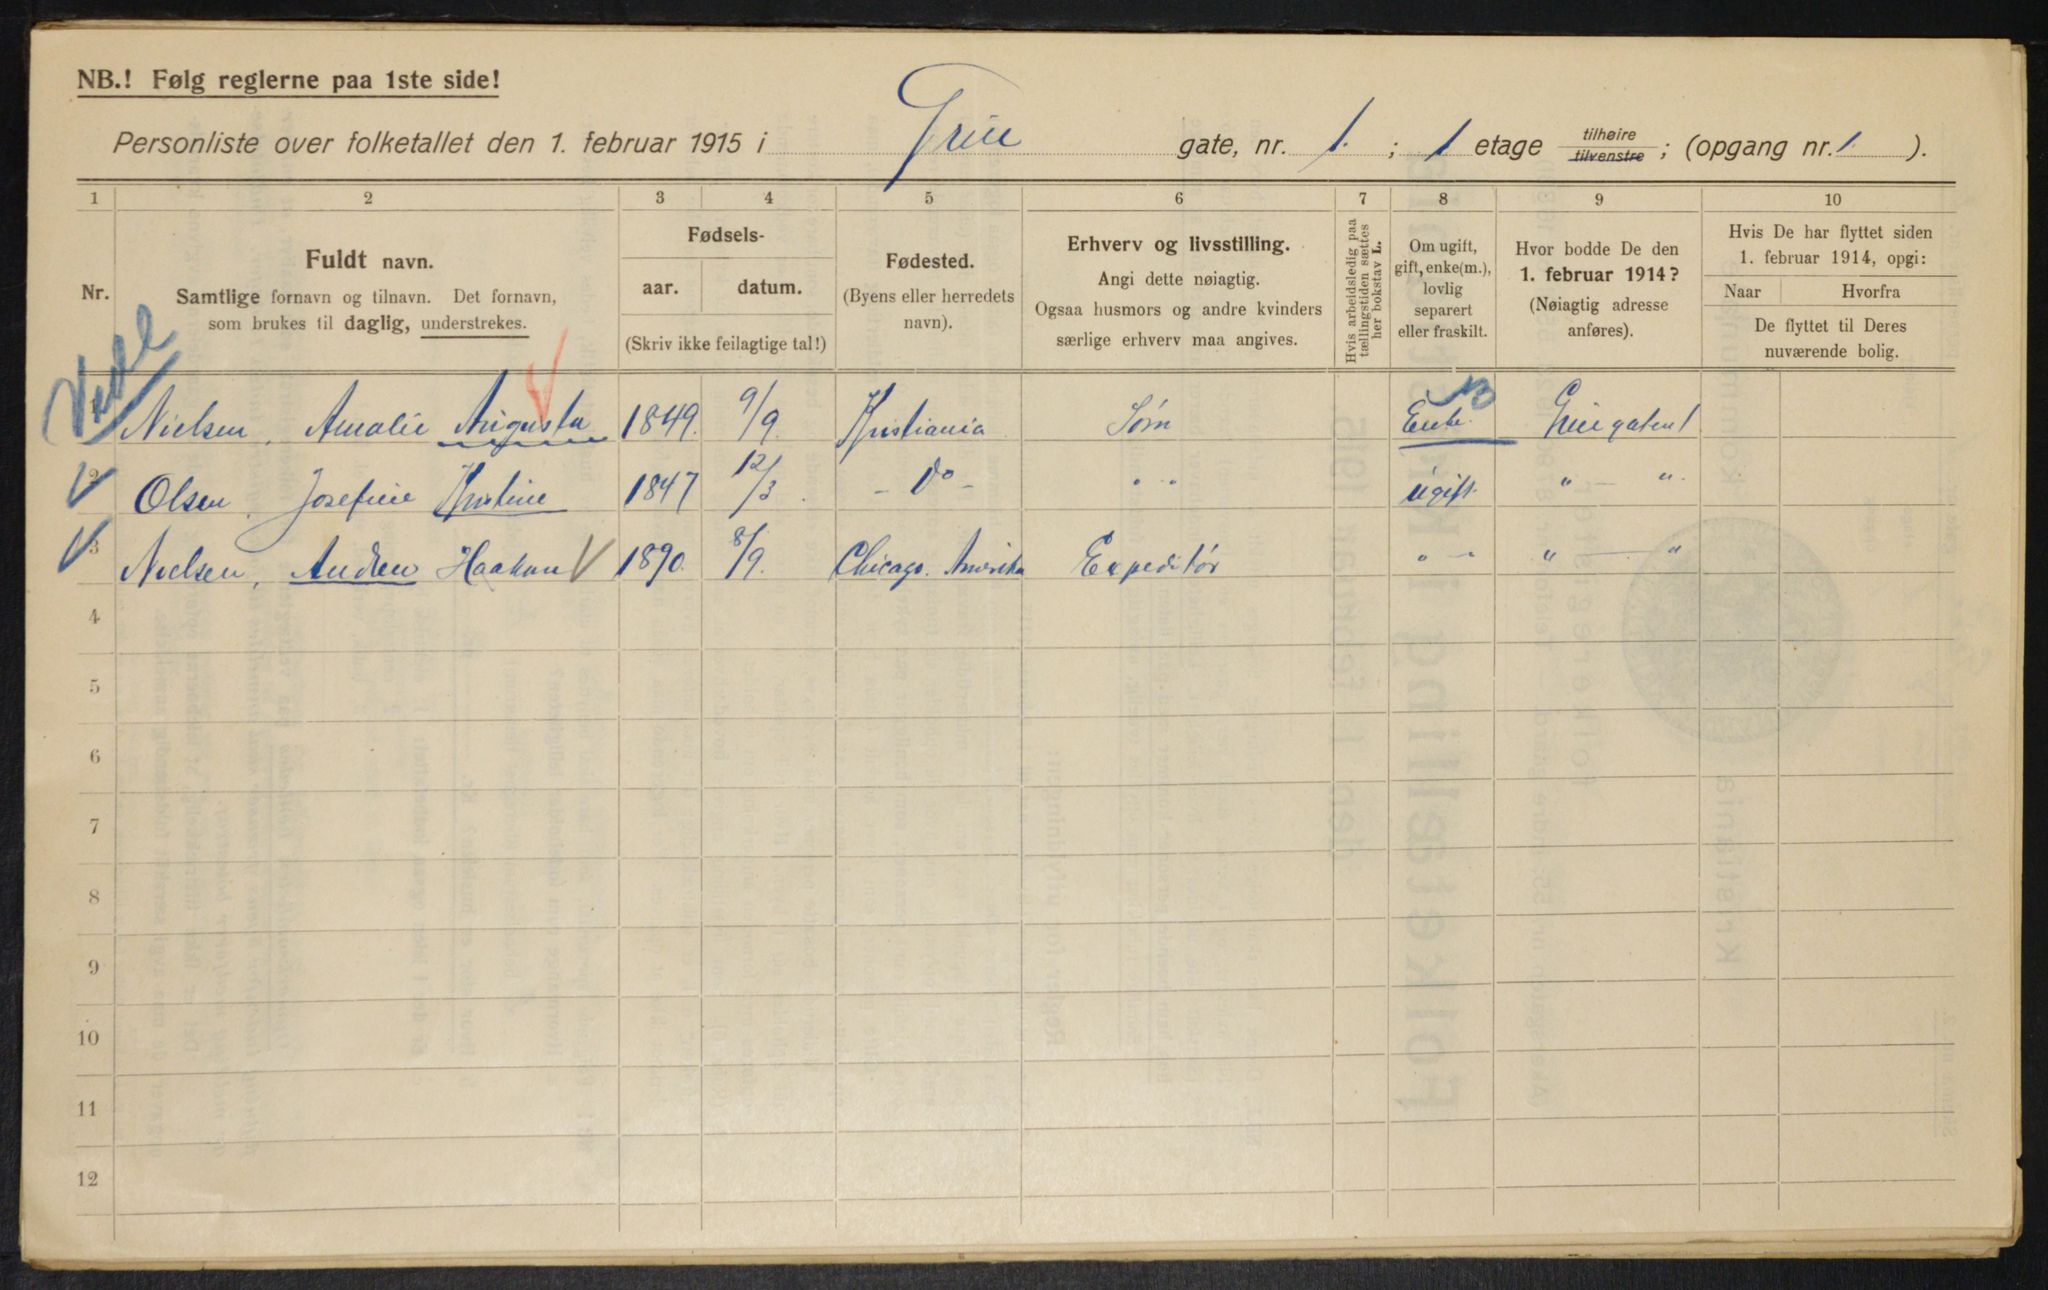 NB.! Følg reglerne paa 1ste side!
Personliste over folketallet den 1. februar 1915 i Griu gate, nr. 1. ; 1 etage tilhøire tilvenstre ; (opgang nr. 1 ).
1 2 3 4 5 6 7 8 9 10
Nr.
Fuldt navn.
Samtlige fornavn og tilnavn. Det fornavn,
som brukes til daglig, understrekes.
Fødsels-
aar. datum.
(Skriv ikke feilagtige tal!)
Fødested.
(Byens eller herredets
navn).
Erhverv og livsstilling.
Angi dette nøiagtig.
Ogsaa husmors og andre kvinders
særlige erhverv maa angives.
Hvis arbeidsledig paa
tællingstiden sættes
her bokstav L.
Om ugift,
gift, enke(m.),
lovlig
separert
eller fraskilt.
Hvor bodde De den
1. februar 1914?
(Nøiagtig adresse
anføres).
Hvis De har flyttet siden
1. februar 1914, opgi:
Naar Hvorfra
De flyttet til Deres
nuværende bolig.
Nielsen, Amalie Augusta 1849. 9/9. Kristiania Søm Enke. Griegaten 1
2 Olsen, Josefine Kristine 1847 12/3. - Do - " " Ugift. " — ".
3 Nielsen, Andrew Haakon 1890. 8/9. Chicago. Amerika Expeditør " — " — "
4
5
6
7
8
9
10
11
12